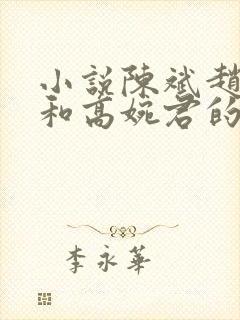 小說陳斌趙
和高婉君的
李永華